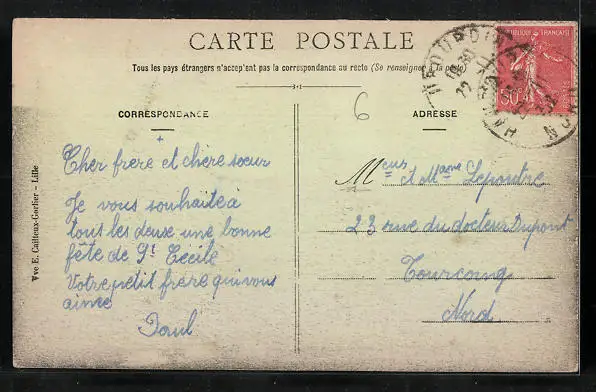 CARTE POSTALE
Tous les pays étrangers n'acceptent pas la correspondance au recto (Se renseigner à la poste)
CORRESPONDANCE
6
ADRESSE
Cher frere et chère sœur
Je vous souhaite à
tout les deux une bonne
fête de St Cécile
Votre petit frere qui vous
aime
Paul
Meus & Mame Lepoutre
23 rue du docteur Dupont
Tourcoing
Nord
Vve E. Cailteux-Gorlier – Lille
FRANÇAISE
50c